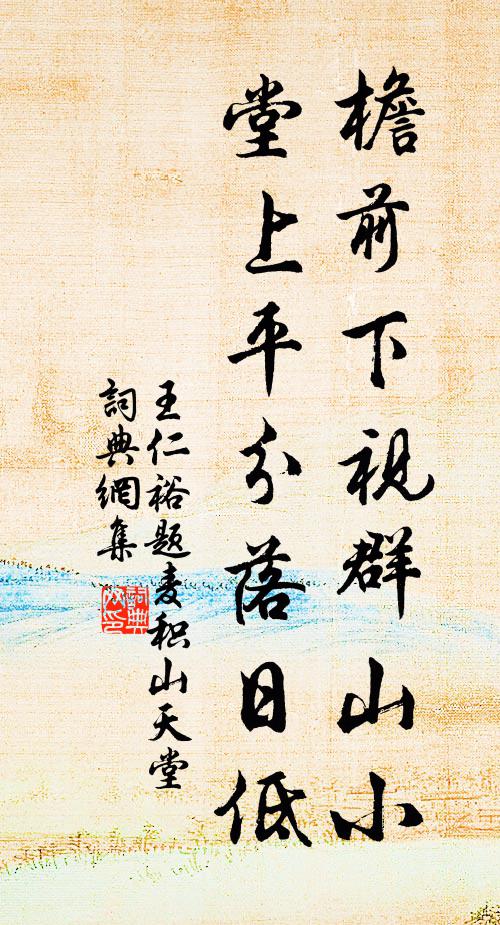 檐前下視群山小
堂上平分落日低
王仁裕題麦积山天堂
詞典網集